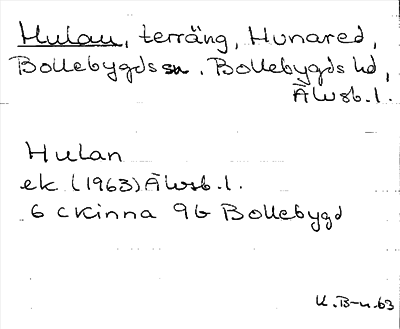 Hulan, terräng, Hunared,
Bollebygds sn. Bollebygds hd,
Älvsb. l.
Hulan
ek (1963) Älvsb. l.
6 c Kinna 9b Bollebygd
U.B-n.63